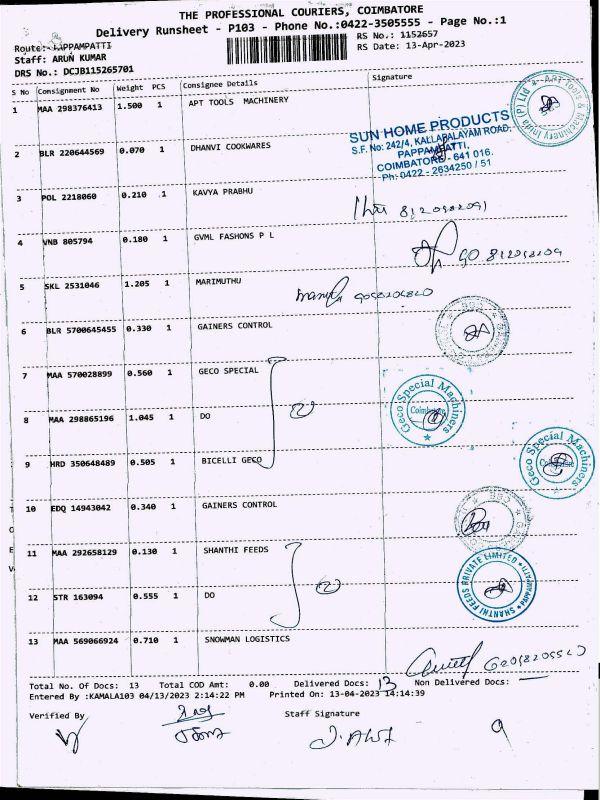 THE PROFESSIONAL COURIERS, COIMBATORE
Delivery Runsheet - P103 - Phone No.:0422-3505555 - Page No.:1
Route: PAPPAMPATTI
RS No.: 1152657
Staff: ARUN KUMAR
RS Date: 13-Apr-2023
DRS No.: DCJB115265701
S No Consignment No Weight PCS Consignee Details Signature
1 MAA 298376413 1.500 1 APT TOOLS MACHINERY
SUN HOME PRODUCTS
S.F. No: 242/4, KALLAPALAYAM ROAD,
PAPPAMPATTI,
COIMBATORE - 641 016.
Ph: 0422 - 2634250 / 51
2 BLR 220644569 0.070 1 DHANVI COOKWARES
3 POL 2218060 0.210 1 KAVYA PRABHU
4 VNB 805794 0.180 1 GVML FASHONS P L
5 SKL 2531046 1.205 1 MARIMUTHU
6 BLR 5700645455 0.330 1 GAINERS CONTROL
7 MAA 570028899 0.560 1 GECO SPECIAL
Geco Special Machiners
Coimbatore
8 MAA 298865196 1.045 1 DO
9 HRD 350648489 0.505 1 BICELLI GECO
Geco Special Machiners
10 EDQ 14943042 0.340 1 GAINERS CONTROL
11 MAA 292658129 0.130 1 SHANTHI FEEDS
SHANTHI FEEDS PRIVATE LIMITED
12 STR 163094 0.555 1 DO
13 MAA 569066924 0.710 1 SNOWMAN LOGISTICS
Total No. Of Docs: 13 Total COD Amt: 0.00 Delivered Docs: 13 Non Delivered Docs:
Entered By :KAMALA103 04/13/2023 2:14:22 PM Printed On: 13-04-2023 14:14:39
Verified By Staff Signature